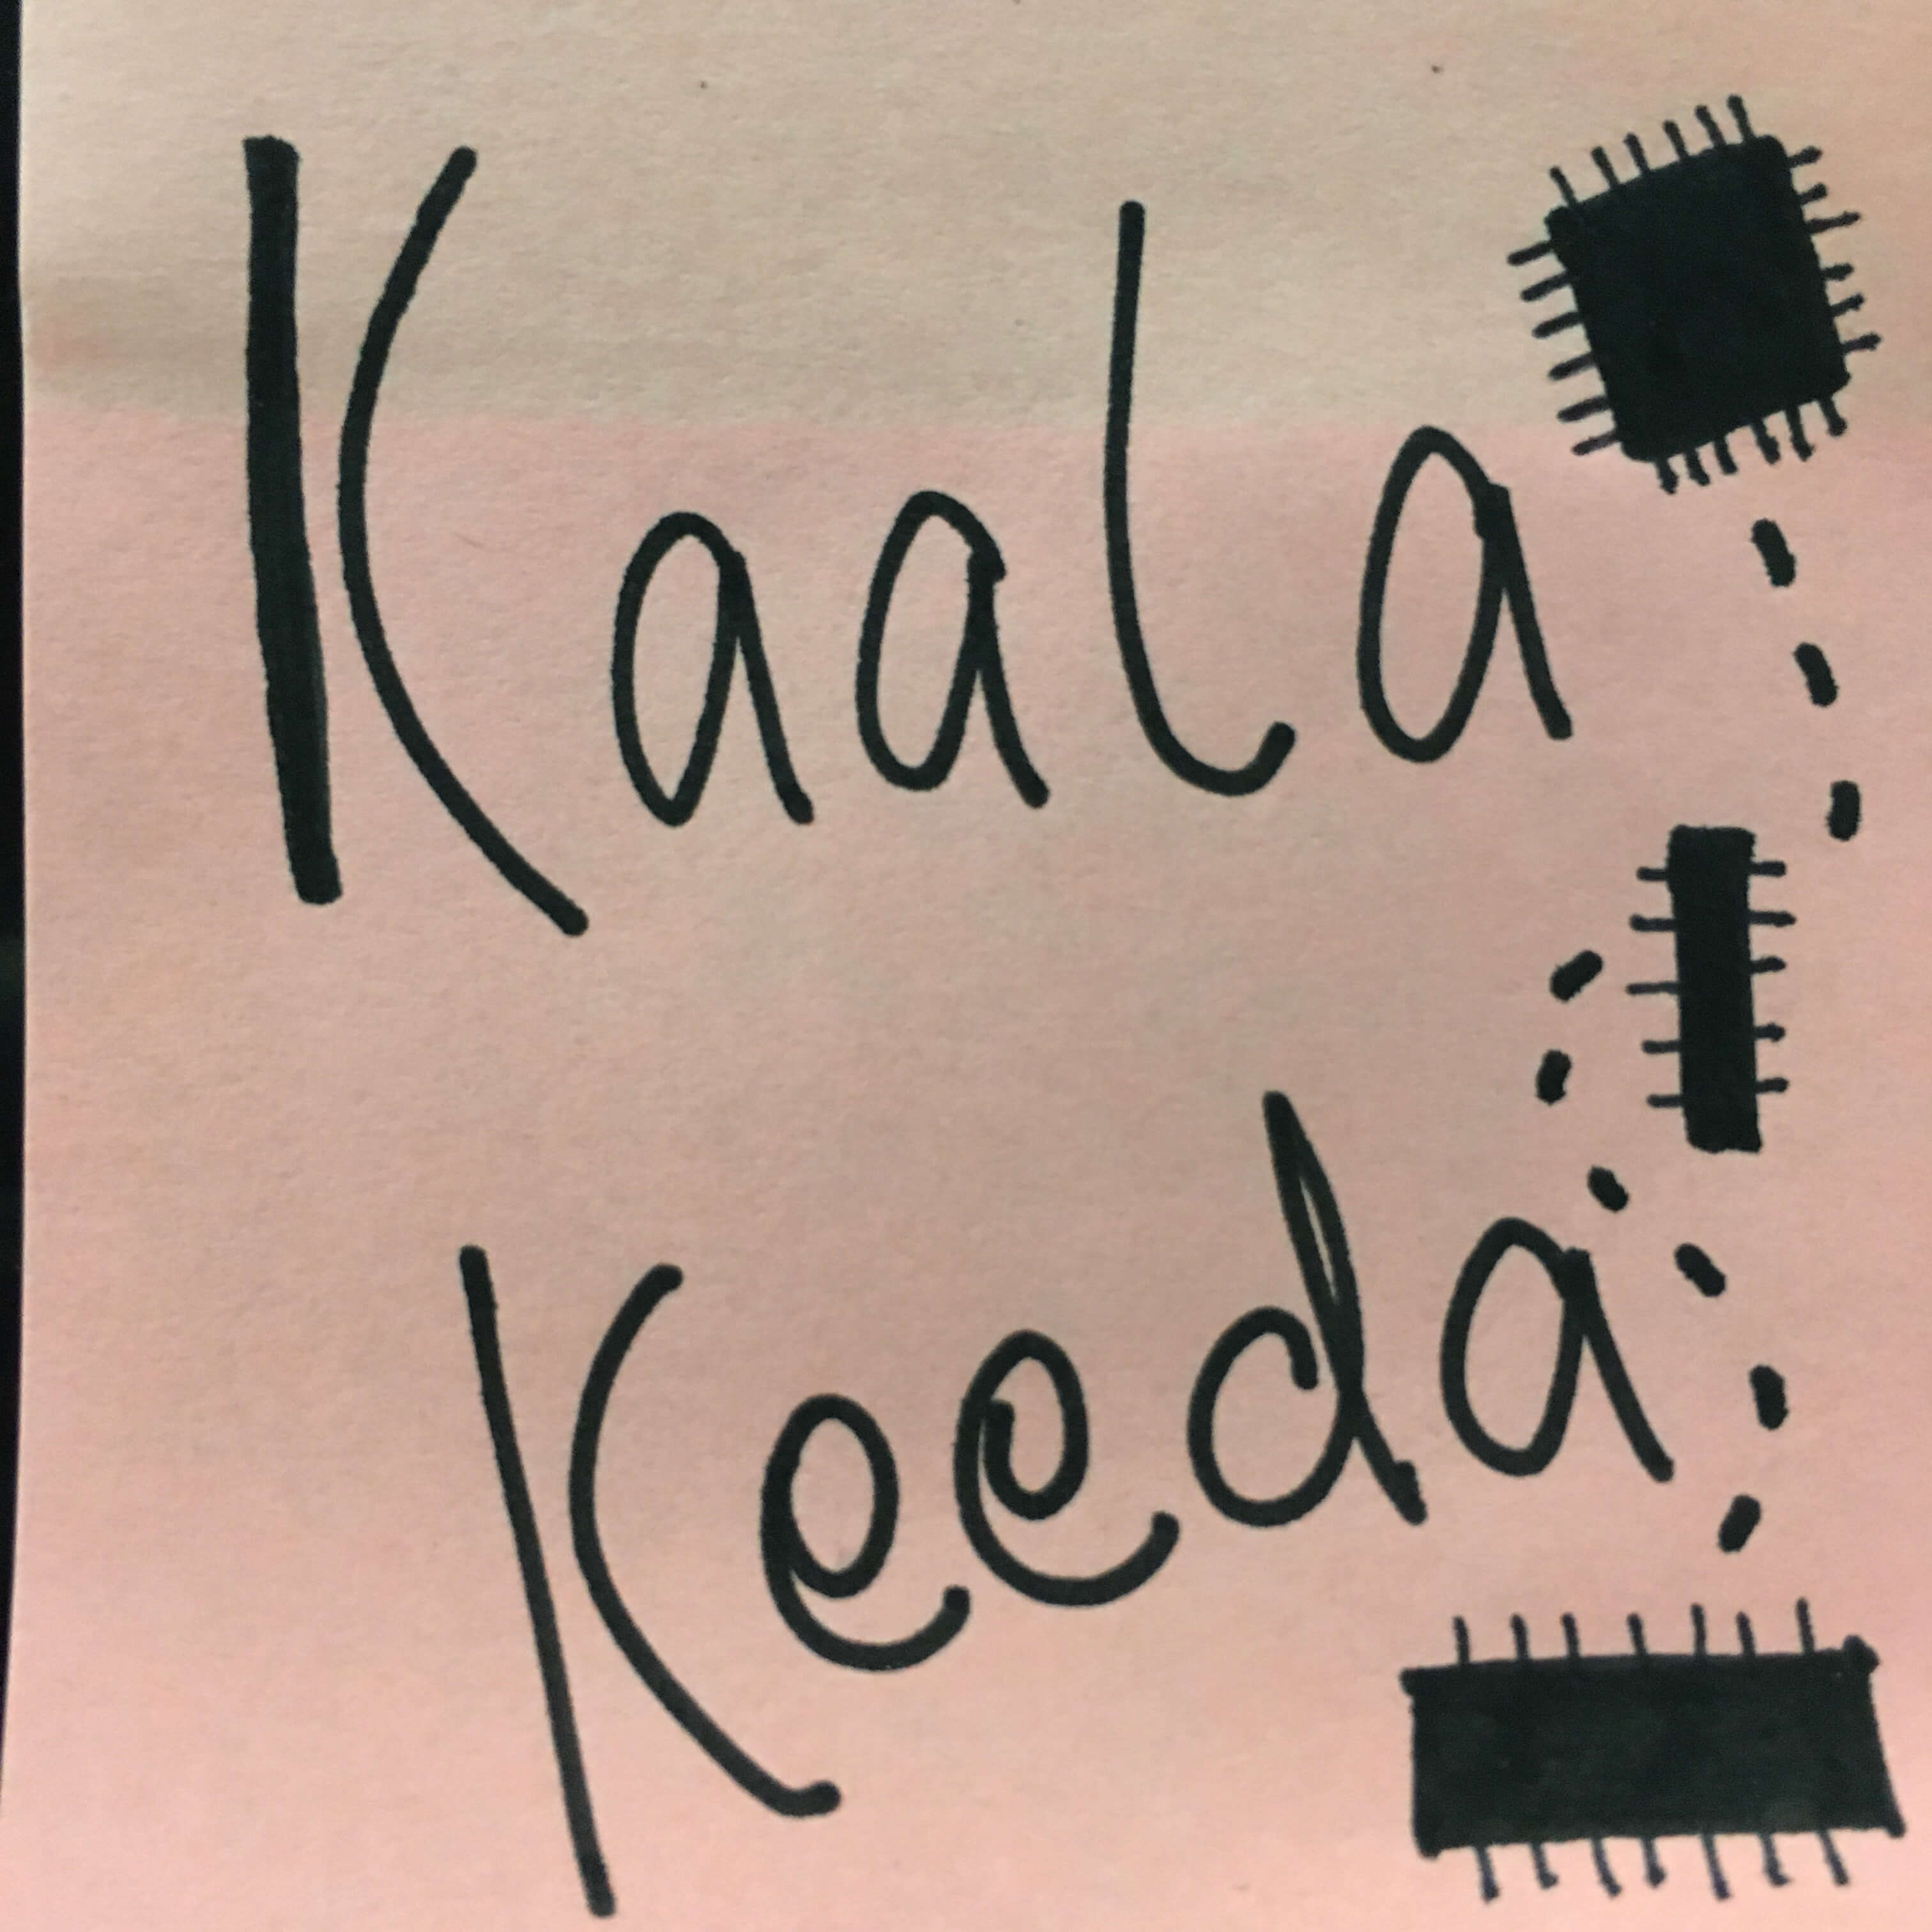 Kaala
Keeda